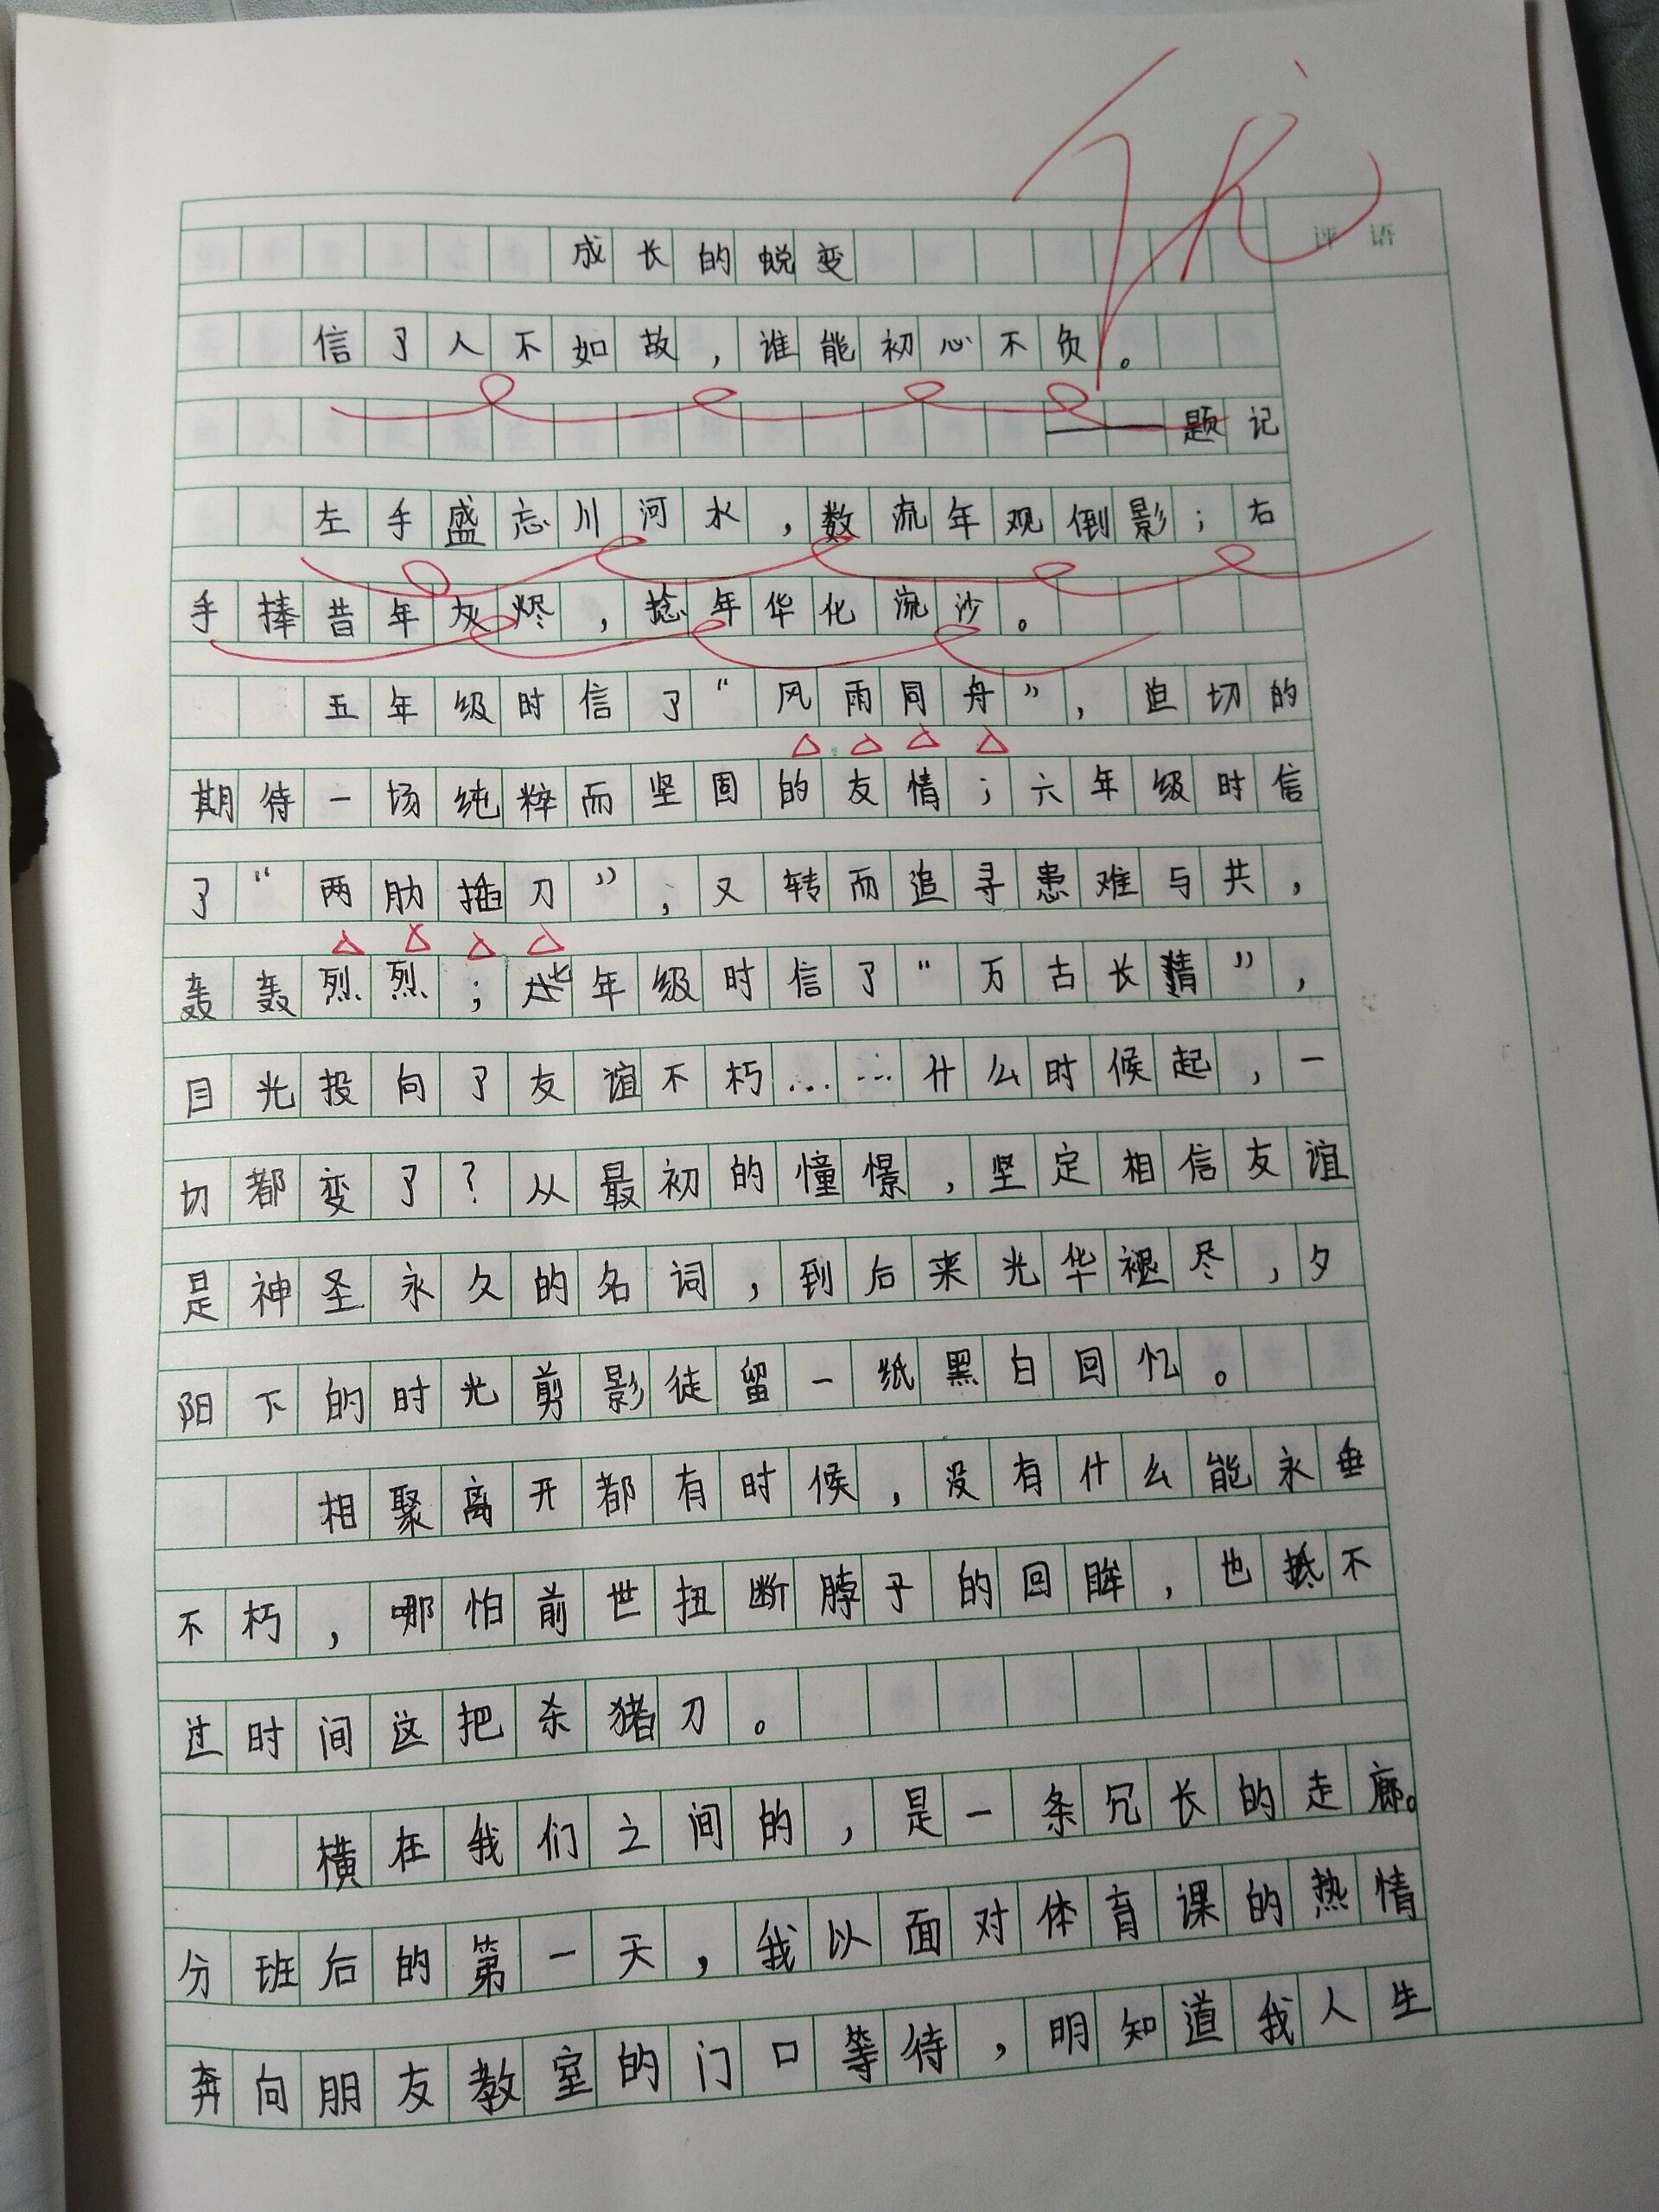 优
评语
成长的蜕变
信了人不如故，谁能初心不负。
——题记
左手盛忘川河水，数流年观倒影；右
手捧昔年灰烬，捻年华化流沙。
五年级时信了“风雨同舟”，迫切的
期待一场纯粹而坚固的友情；六年级时信
了“两肋插刀”，又转而追寻患难与共，
轰轰烈烈；年级时信了“万古长情”，
目光投向了友谊不朽……什么时候起，一
切都变了？从最初的憧憬，坚定相信友谊
是神圣永久的名词，到后来光华褪尽，夕
阳下的时光剪影徒留一纸黑白回忆。
相聚离开都有时候，没有什么能永垂
不朽，哪怕前世扭断脖子的回眸，也抵不
过时间这把杀猪刀。
横在我们之间的，是一条冗长的走廊。
分班后的第一天，我以面对体育课的热情
奔向朋友教室的门口等待，明知道我人生